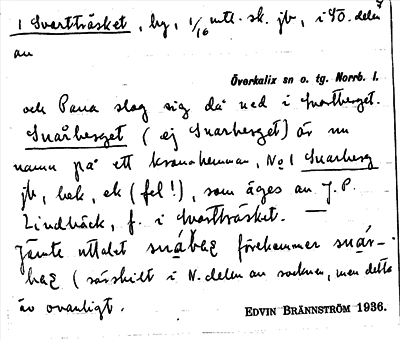 1 Svartträsket, by, 1/16 mtl. sk. jb, i SO. delen
av
Överkalix sn o. tg. Norrb. l.
och Pava slog sig då ned i Svartberget.
Snårberget (ej Snarberget) är nu
namn på ett kronohemman, No 1 Snarberg
jb, bok, ek (fel!), som äges av J. P.
Lindbäck, f. i Svartträsket. —
Jämte uttalet förekommer
(särskilt i N. delen av socknen, men detta
är ovanligt.
EDVIN BRÄNNSTRÖM 1936.